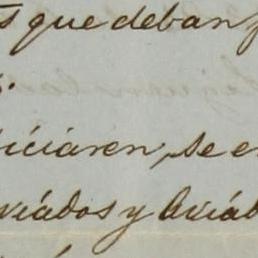 s que deban
iciaren, se e
viados y Aviad